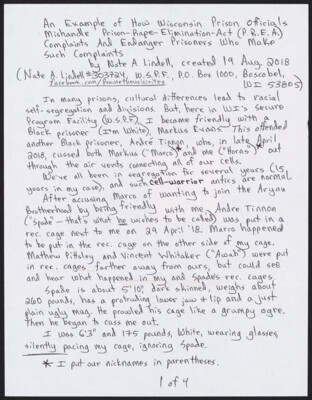 An Example of How Wisconsin Prison Officials
Mishandle Prison-Rape-Elimination-Act (P.R.E.A.)
Complaints And Endanger Prisoners Who Make
Such Complaints
by Nate A. Lindell, created 19 Aug. 2018
(Nate A. Lindell #303724, W.S.P.F., P.O. Box 1000, Boscobel,
WI 53805)
In many prisons, cultural differences lead to racial
self-segregation and divisions. But, here in WI's Secure
Program Facility (W.S.P.F.), I became friendly with a
Black prisoner (I'm White), Markus Evans. This offended
another Black prisoner, Andre Tinnon*, who, in late April
2018, cussed both Markus ("Marco") and me ("Horas") out
through the air vents connecting all of our cells.
We've all been in segregation for several years (15
years in my case), and such cell-warrior antics are normal.
After accusing Marco of wanting to join the Aryan
Brotherhood by being friendly with me, Andre Tinnon
("Spade"-that's what he wishes to be called) was put in a
rec. cage next to me on 29 April '18. Marco happened
to be put in the rec. cage on the other side of my cage.
Mathew Pitsley and Vincent Whitaker ("Awah") were put
in rec. cages farther away from ours, but could see
and hear what happened in my and Spade's rec. cages.
Spade is about 5'10", dark skinned, weighs about
260 pounds, has a protruding lower jaw + lip and a just
plain ugly mug. He prowled his cage like a grumpy ogre.
Then he began to cuss me out.
I was 6'3" and 175 pounds, White, wearing glasses,
silently pacing my cage, ignoring Spade.
* I put our nicknames in parentheses.
1 of 4